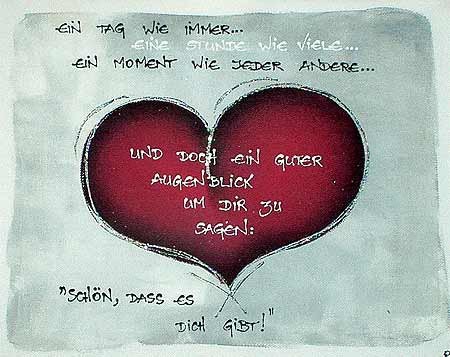 EIN TAG WIE IMMER...
EINE STUNDE WIE VIELE...
EIN MOMENT WIE JEDER ANDERE...
UND DOCH EIN GUTER
AUGENBLICK
UM DIR ZU
SAGEN:
"SCHÖN, DASS ES
DICH GIBT!"